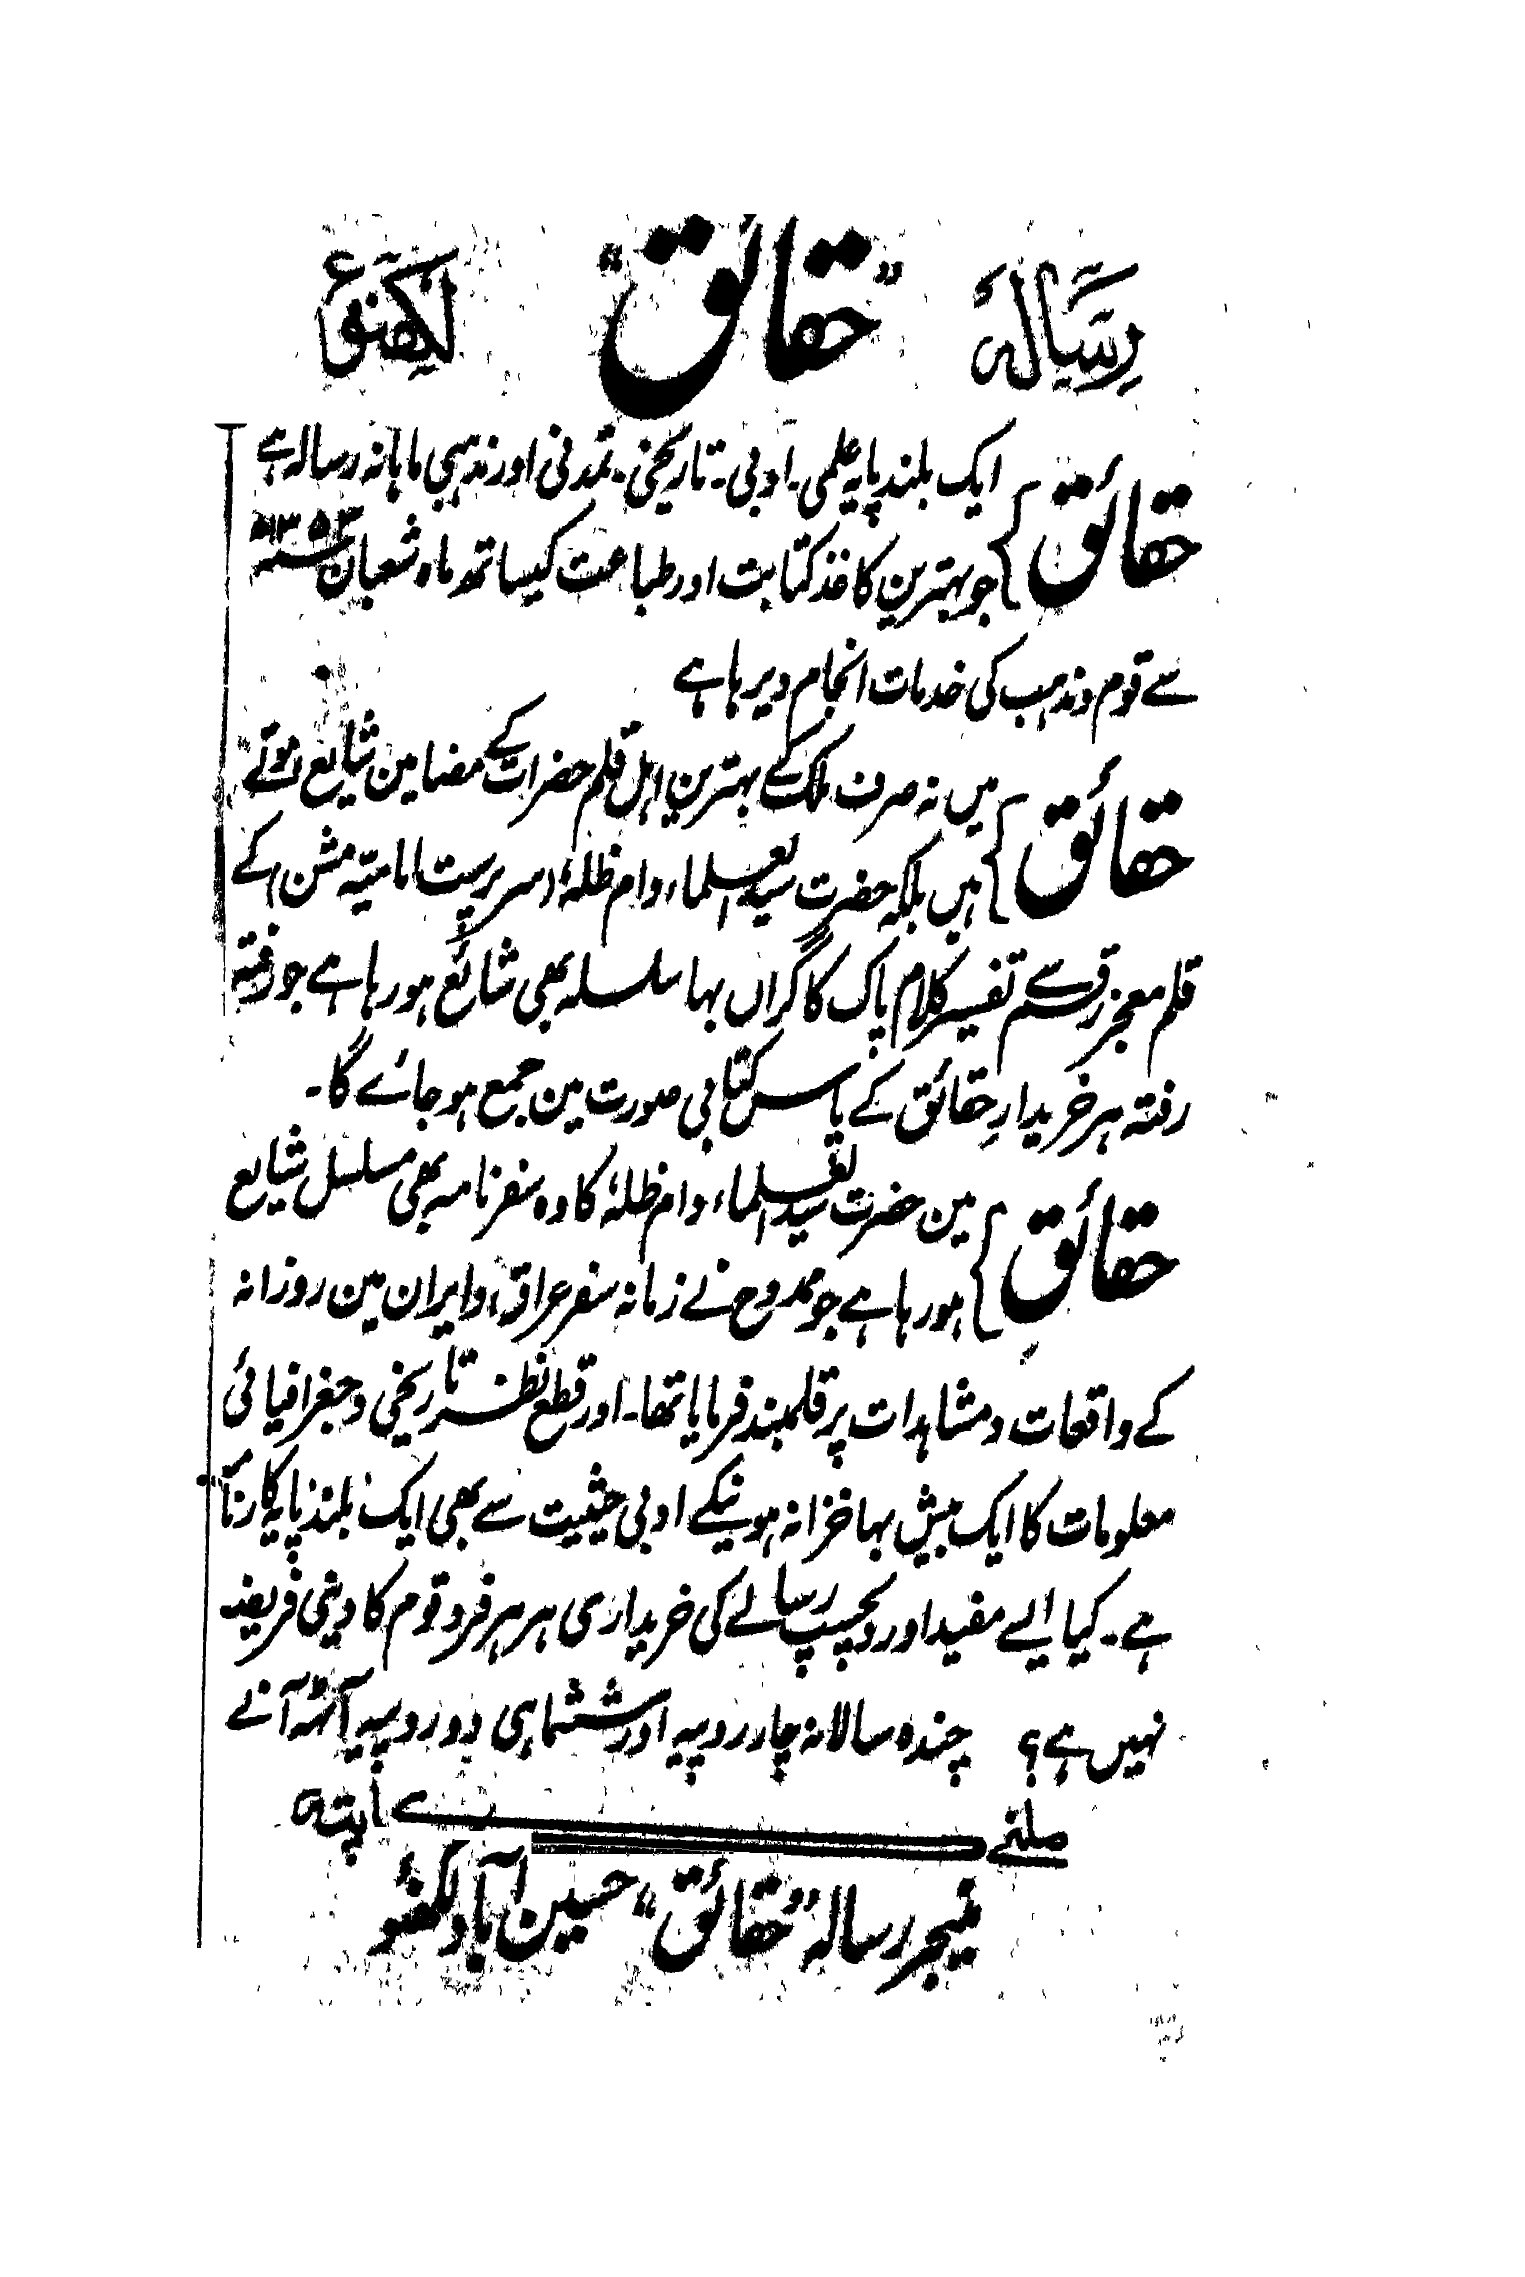 رسالہ "حقائق" لکھنؤ
ایک بلند پایہ علمی۔ ادبی۔ تاریخی۔ تمدنی اور مذہبی ماہانہ رسالہ ہے
حقائق
جو بہترین کاغذ کتابت اور طباعت کیساتھ ماہ شعبان ۱۳۵۳ھ
سے قوم و مذہب کی خدمات انجام دیر ہا ہے
میں نہ صرف ملک کے بہترین اہل قلم حضرات کے مضامین شایع ہوتے
حقائق
ہیں بلکہ حضرت سید العلماء دام ظلہٗ (سرپرست امامیہ مشن) کے
قلم معجز رقم سے تفسیر کلام پاک کا گراں بہا سلسلہ بھی شائع ہورہا ہے جو رفتہ
رفتہ ہر خریدارِ حقائق کے پاس کتابی صورت مین جمع ہو جائے گا۔
مین حضرت سید العلماء دام ظلہٗ کا وہ سفرنامہ بھی مسلسل شایع
حقائق
ہورہا ہے جو ممدوح نے زمانہ سفر عراق و ایران مین روزانہ
کے واقعات و مشاہدات پر قلمبند فرمایا تھا۔ اور قطع نظر تاریخی و جغرافیائی
معلومات کا ایک بیش بہا خزانہ ہونیکے ادبی حیثیت سے بھی ایک بلند پایہ
ہے۔ کیا ایسے مفید اور دلچسپ رسالے کی خریداری ہر ہر فرد قوم کا دینی فریضہ
نہیں ہے؟ چندہ سالانہ چار روپیہ اور ششماہی دو روپیہ آٹھ آنے
ملنے کا پتہ
منیجر رسالہ "حقائق" حسین آباد لکھنؤ